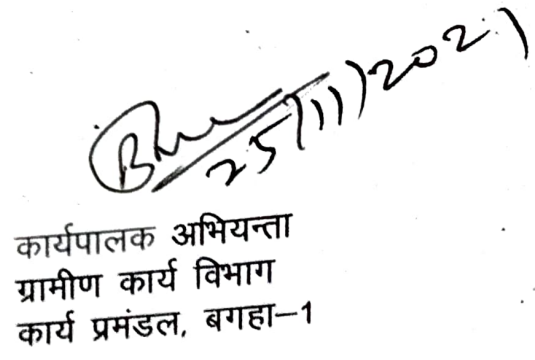 25/11/2021
कार्यपालक अभियन्ता
ग्रामीण कार्य विभाग
कार्य प्रमंडल, बगहा-1